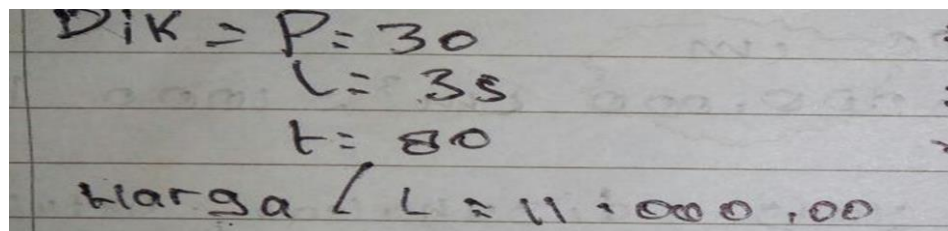 Dik = P = 30
l = 35
t = 80
Harga / L = 11.000,00